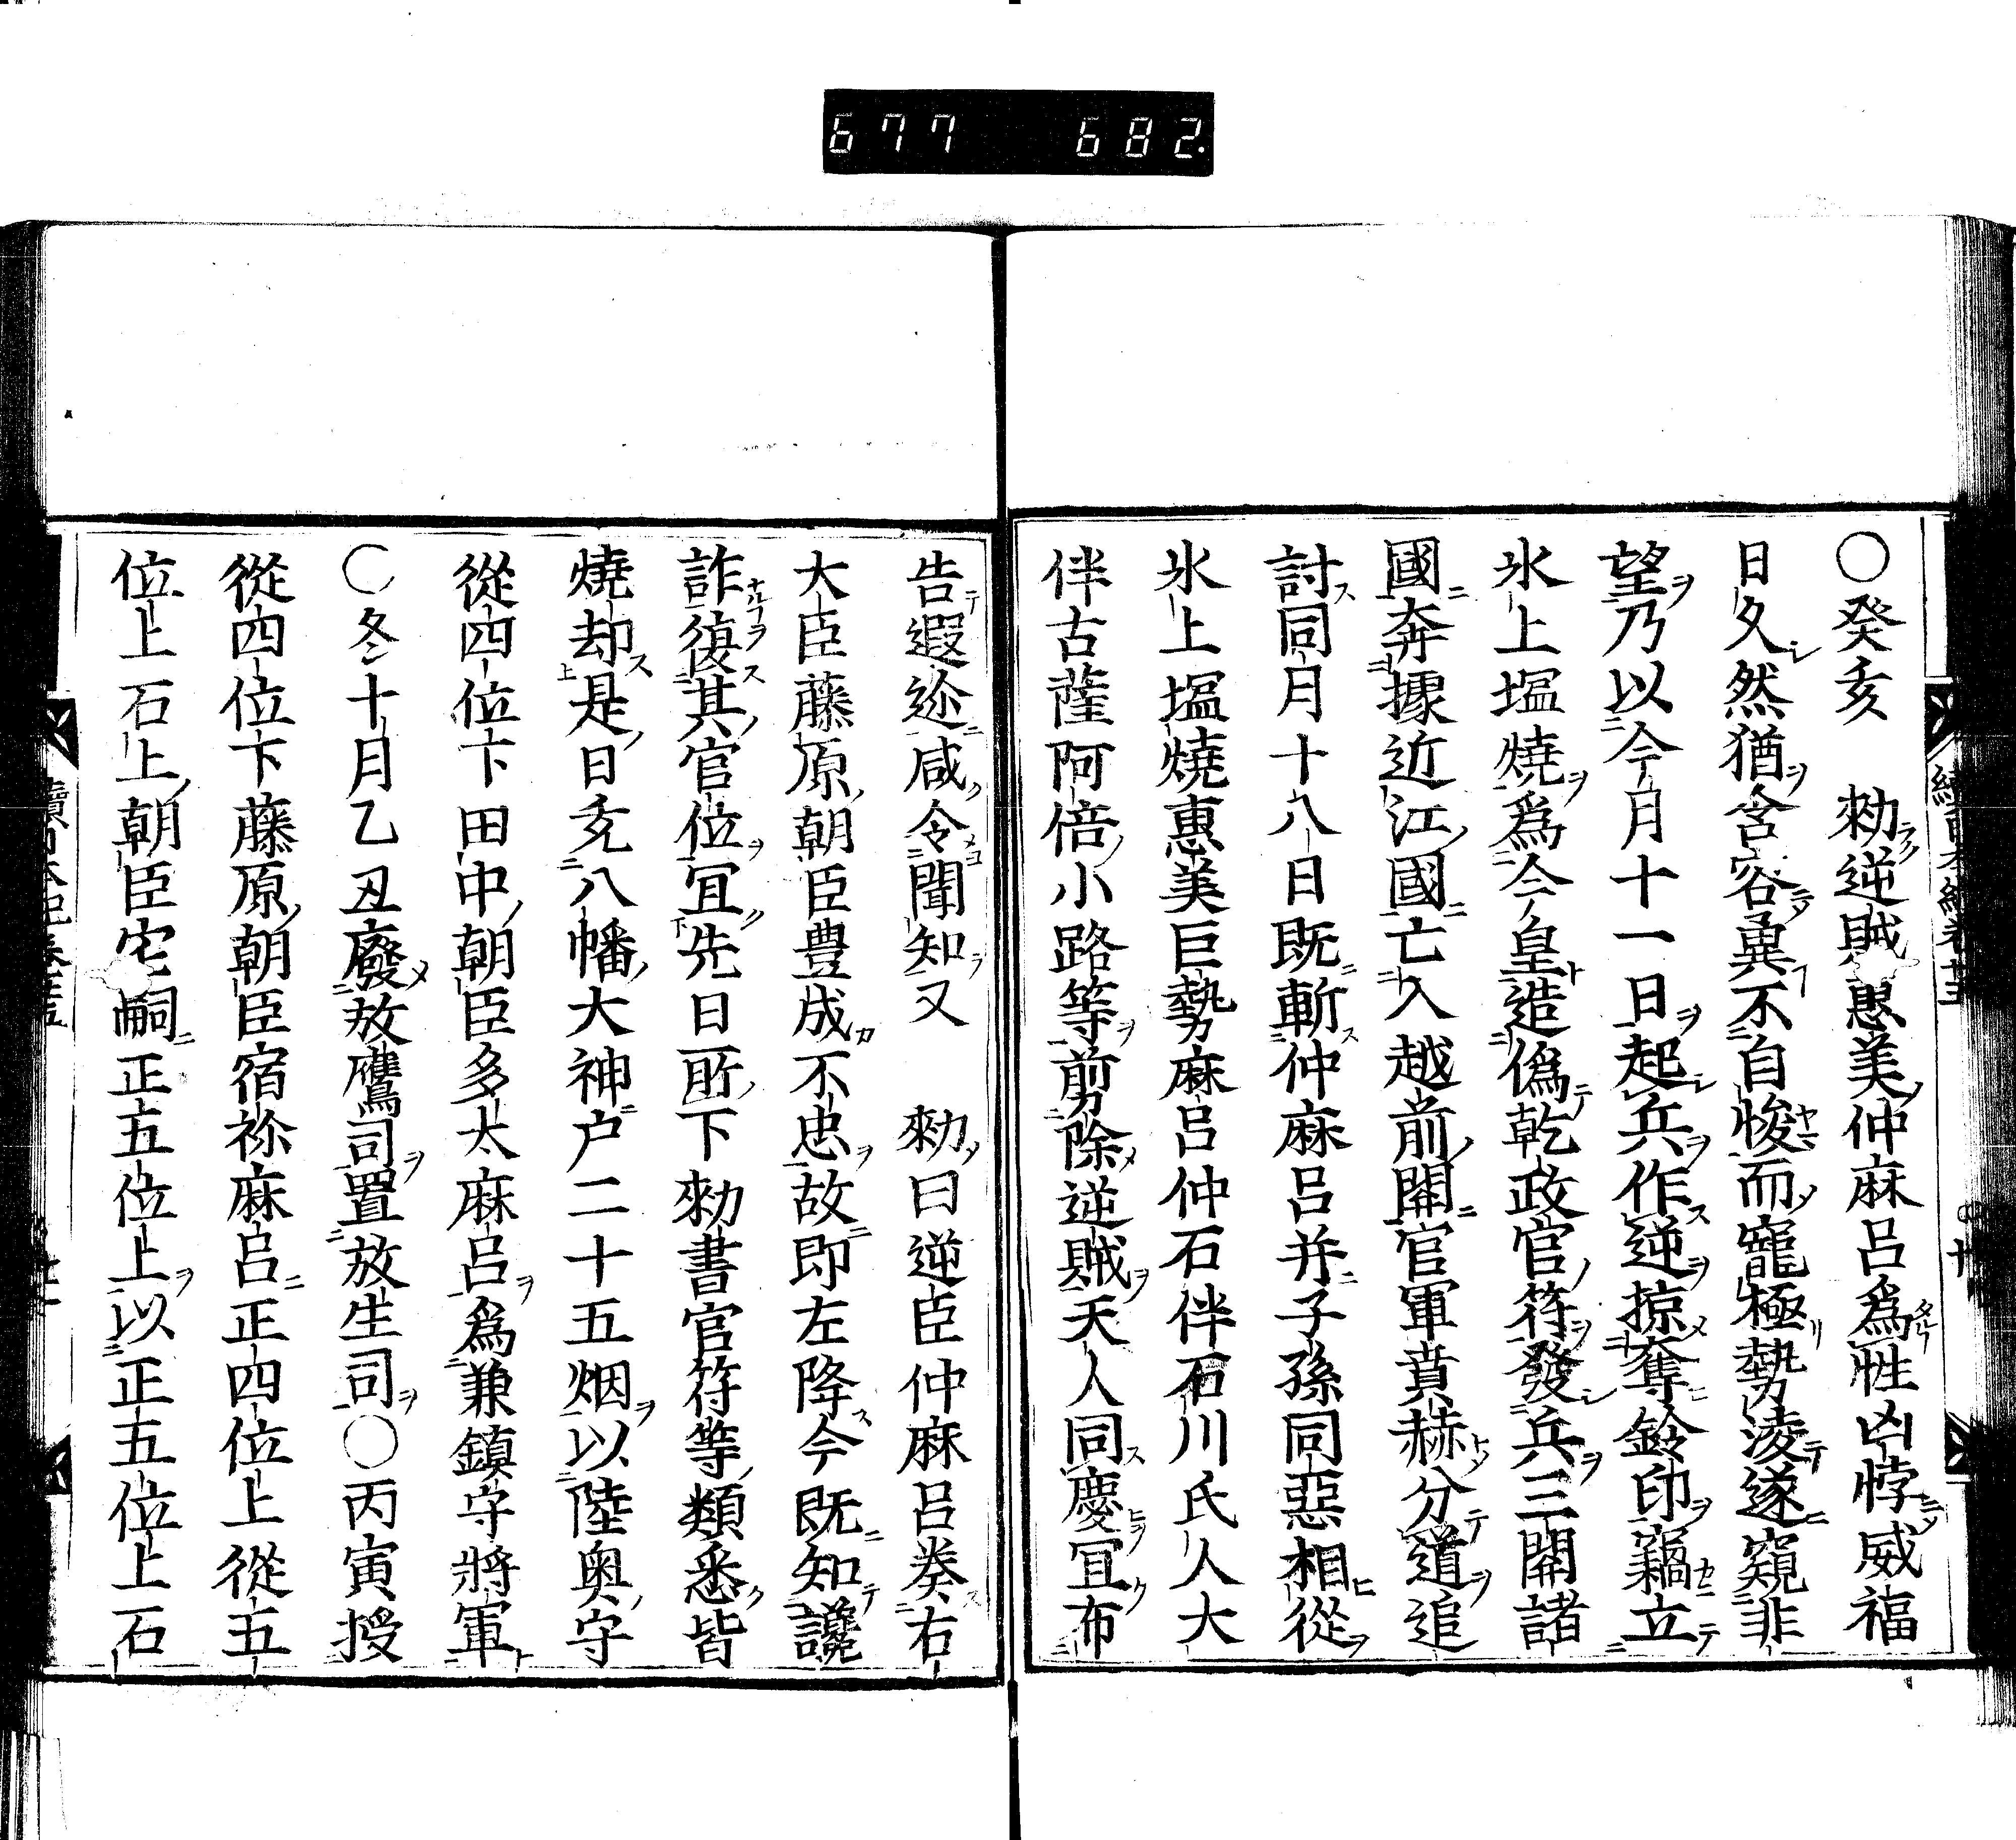 677 682
○癸亥 勑逆賊惠美仲麻呂爲性凶悖威福
日久然猶含容冀不自悛而寵極勢凌遂窺非
望乃以今月十一日起兵作逆掠奪鈴印竊立
氷上塩燒爲今皇造僞乾政官符發兵三關諸
國奔據近江國亡入越前關官軍賁赫分道追
討同月十八日既斬仲麻呂并子孫同惡相從
氷上塩燒惠美巨勢麻呂仲石伴石川氏人大
伴古薩阿倍小路等剪除逆賊天人同慶宜布
告遐迩咸令聞知又 勑曰逆臣仲麻呂奏右
大臣藤原朝臣豊成不忠故即左降今既知讒
詐復其官位宜先日所下勑書官符等類悉皆
燒却是日充八幡大神戸二十五烟以陸奥守
從四位下田中朝臣多太麻呂爲兼鎮守將軍
○冬十月乙丑廢放鷹司置放生司○丙寅授
從四位下藤原朝臣宿祢麻呂正四位上從五
位上石上朝臣宅嗣正五位上以正五位上石